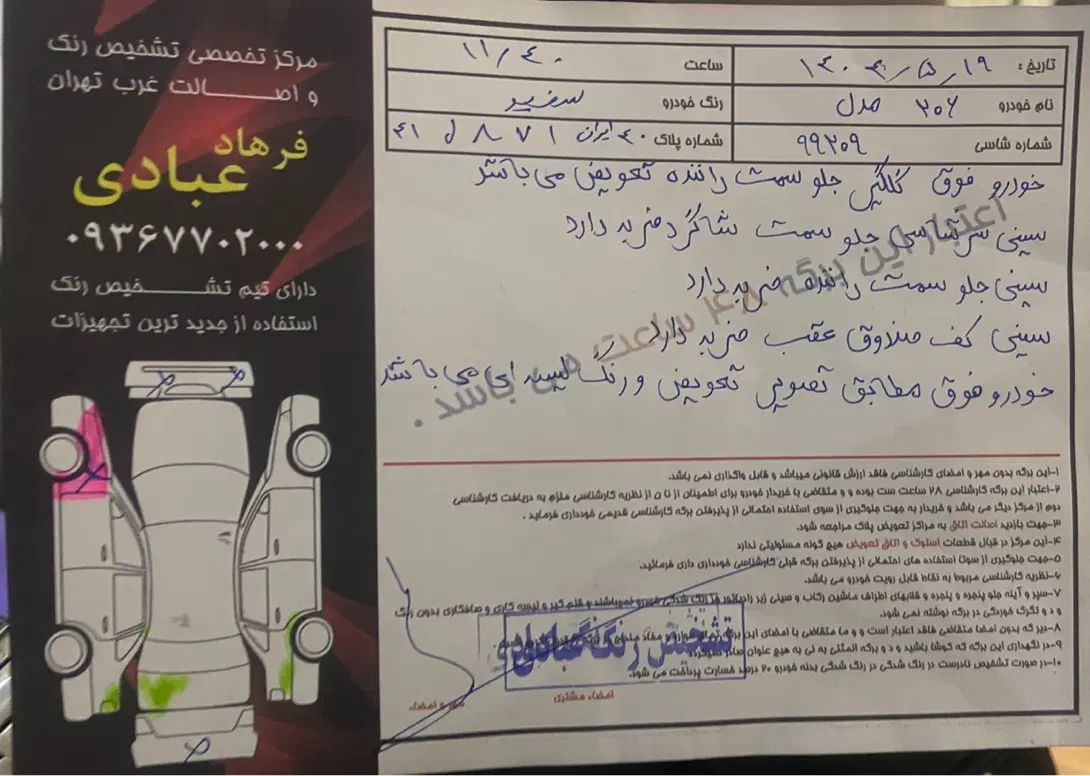 مرکز تخصصی تشخیص رنگ
و اصالت غرب تهران
فرهاد
عبادی
۰۹۳۶۷۷۰۲۰۰۰
دارای تیم تشخیص رنگ
استفاده از جدید ترین تجهیزات
تاریخ : ۱۴۰۴/۵/۱۹ ساعت ۱۱/۴۰
نام خودرو ۲۰۶ مدل رنگ خودرو سفید
شماره شاسی ۹۹۳۰۹ شماره پلاک ۴۰ ایران ۸۷۱ ل ۴۱
خودرو فوق گلگیر جلو سمت راننده تعویض می باشد
سینی سرشاسی جلو سمت شاگرد ضربه دارد
سینی جلو سمت راننده ضربه دارد
سینی کف صندوق عقب ضربه دارد
خودرو فوق مطابق تصویر تعویض و رنگ لیسه ای می باشد
اعتبار این برگه ۴۸ ساعت می باشد .
۱-این برگه بدون مهر و امضای کارشناسی فاقد ارزش قانونی میباشد و قابل واگذاری نمی باشد.
۲-اعتبار این برگه کارشناسی ۲۸ ساعت ست بوده و و متقاضی با خریدار خودرو برای اطمینان از نا ن از نظریه کارشناسی ملزم به دریافت کارشناسی
دوم از مرکز دیگر می باشد و خریدار به جهت جلوگیری از سوی استفاده احتمالی از پذیرفتن برگه کارشناسی قدیمی خودداری فرماید .
۳-جهت بازدید اصالت اتاق به مراکز تعویض پلاک مراجعه شود.
۴-این مرکز در قبال قطعات استوک و اتاق تعویض هیچ گونه مسئولیتی ندارد
۵-جهت جلوگیری از سوتا استفاده های احتمالی از پذیرفتن برگه قبلی کارشناسی خودداری داری فرمائید.
۶-نظریه کارشناسی مربوط به نقاط قابل رویت خودرو می باشد.
۷-سپر و آینه جلو پنجره و پنجره و قلابهای اطراف ماشین رکاب و سینی زیر رادیاتور جز رنگ شدگی خودرو نمیباشند و قلم گیر و لیسه کاری و صافکاری بدون رنگ
و د و تگرگ خوردگی در برگه نوشته نمی شود.
۸-دیر که بدون امضا متقاضی فاقد اعتبار است و و ما متقاضی با امضای این برگه
۹-در نگهداری این برگه که کوشا باشید و د و برگه المثنی به نی به هیچ عنوان صادر نمیگردد
۱۰-در صورت تشخیص نادرست در رنگ شدگی در رنگ شدگی بدنه خودرو ۲۰ درصد خسارت پرداخت می شود.
تشخیص رنگ عبادی
امضاء مشتری
مهر و امضاء